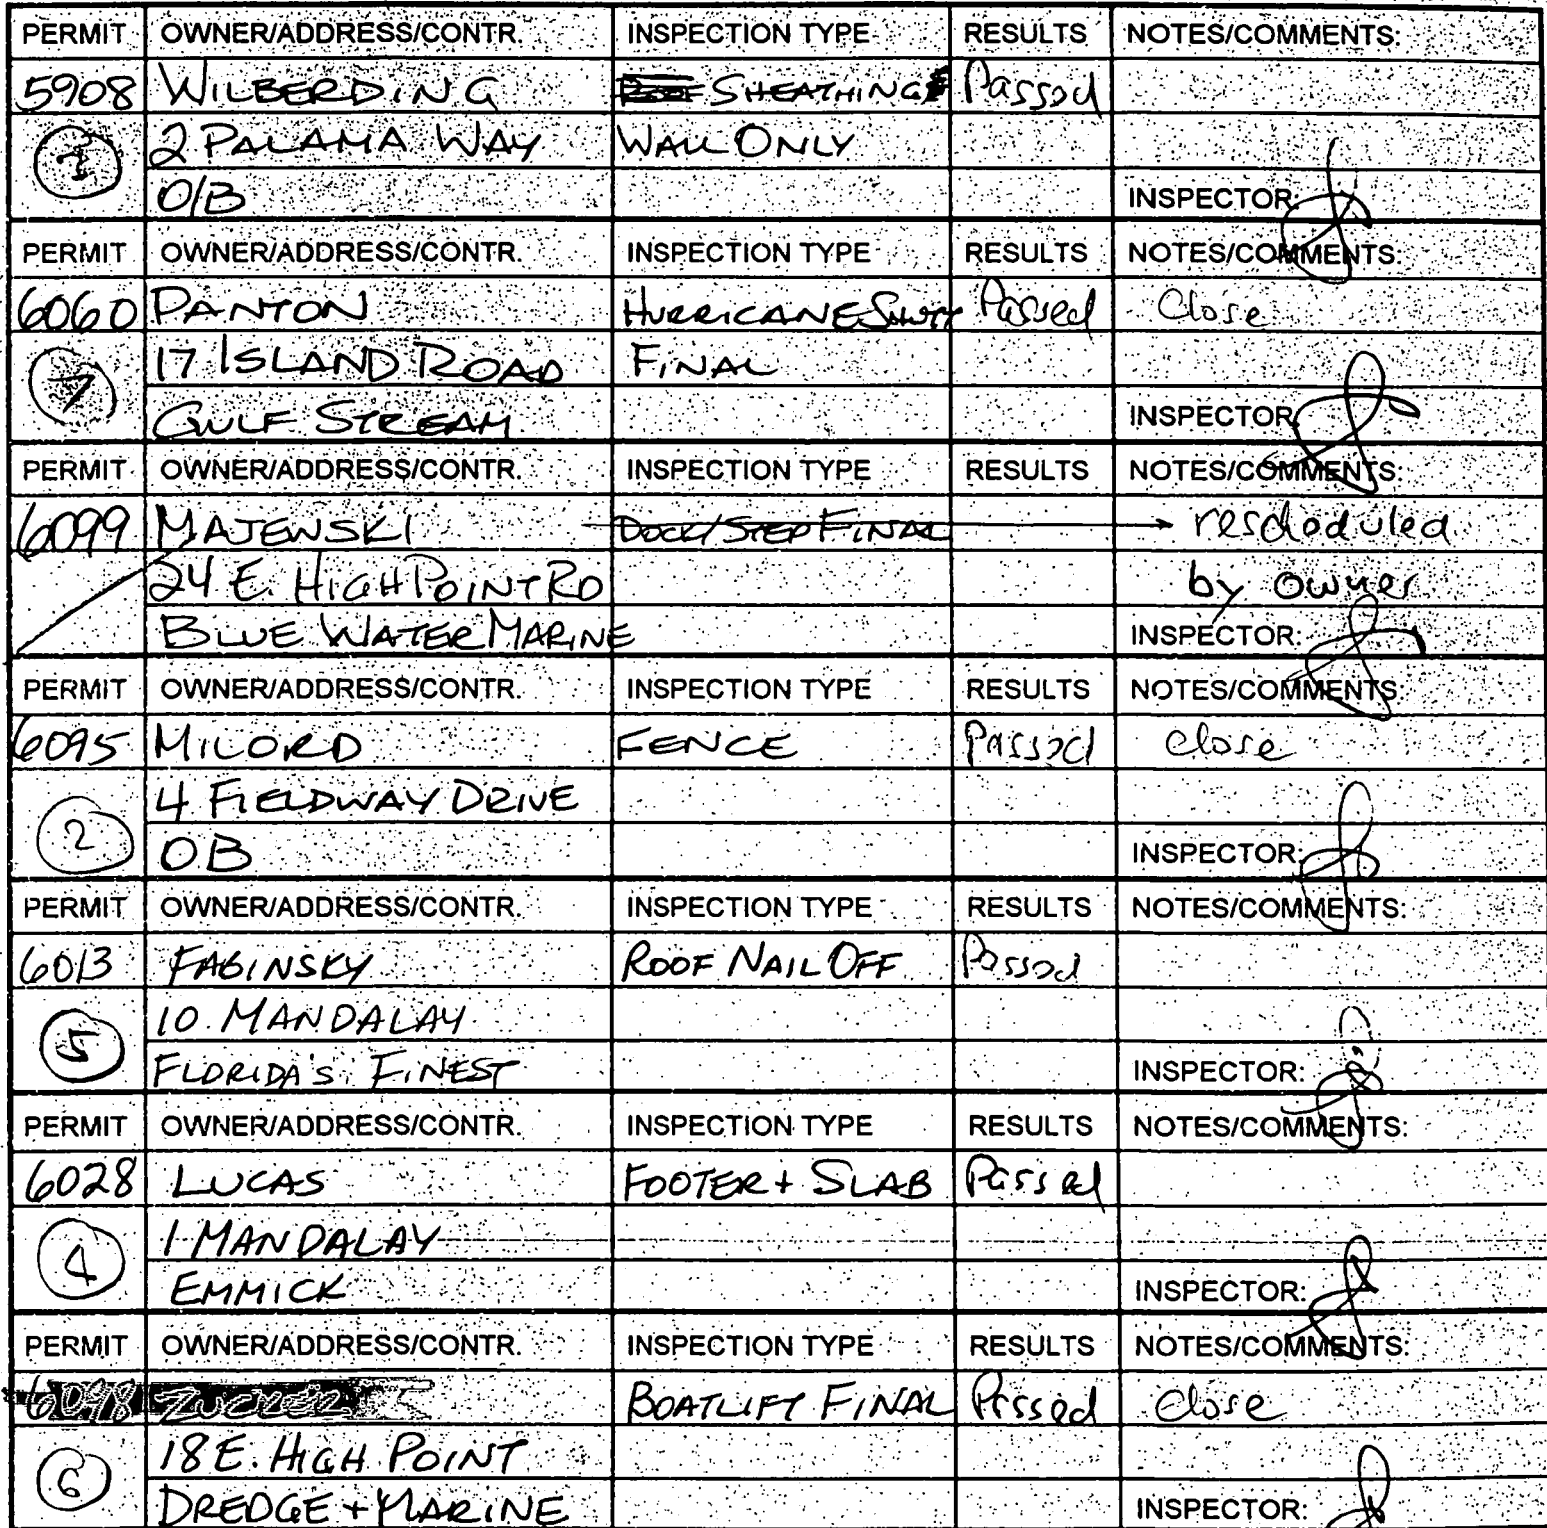 PERMIT OWNER/ADDRESS/CONTR. INSPECTION TYPE RESULTS NOTES/COMMENTS:
5908 WILBERDING SHEATHING Passed
2 PALAMA WAY WALL ONLY
O/B INSPECTOR:
PERMIT OWNER/ADDRESS/CONTR. INSPECTION TYPE RESULTS NOTES/COMMENTS:
6060 PANTON HURRICANE SHUTT Passed Close
7 17 ISLAND ROAD FINAL
GULF STREAM INSPECTOR
PERMIT OWNER/ADDRESS/CONTR. INSPECTION TYPE RESULTS NOTES/COMMENTS:
6099 MAJEWSKI DOCK/STEP FINAL → rescheduled
24 E. HIGH POINT RD by owner
BLUE WATER MARINE INSPECTOR:
PERMIT OWNER/ADDRESS/CONTR. INSPECTION TYPE RESULTS NOTES/COMMENTS:
6095 MILORD FENCE Passed close
2 4 FIELDWAY DRIVE
OB INSPECTOR:
PERMIT OWNER/ADDRESS/CONTR. INSPECTION TYPE RESULTS NOTES/COMMENTS:
6013 FABINSKY ROOF NAIL OFF Passed
5 10 MANDALAY
FLORIDA'S FINEST INSPECTOR:
PERMIT OWNER/ADDRESS/CONTR. INSPECTION TYPE RESULTS NOTES/COMMENTS:
6028 LUCAS FOOTER + SLAB Passed
4 1 MANDALAY
EMMICK INSPECTOR:
PERMIT OWNER/ADDRESS/CONTR. INSPECTION TYPE RESULTS NOTES/COMMENTS:
6098 BOATLIFT FINAL Passed close
6 18 E. HIGH POINT
DREDGE + MARINE INSPECTOR: